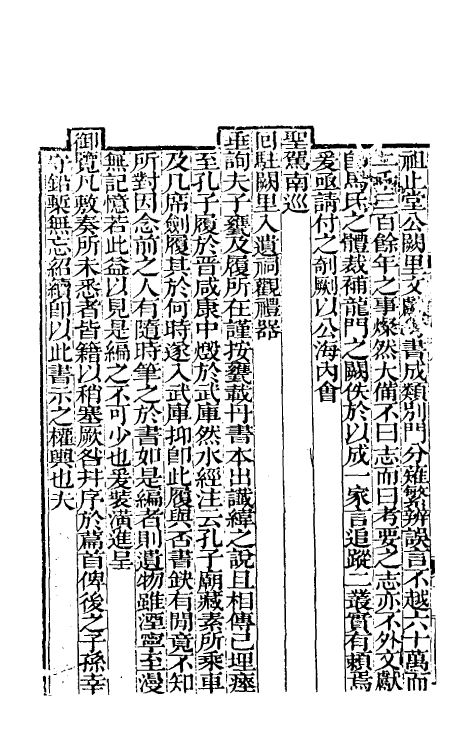 祖止堂公闕里文獻 書成類別門分薙繁辨誤言不越六十萬而
二千三百餘年之事燦然大備不曰志而曰考要之志亦不外文獻
自馬氏之體裁補龍門之闕佚於以成一家言追蹤二叢實有賴焉
爰亟請付之剞劂以公海內會
聖駕南巡
回駐闕里入遺祠觀禮器
垂詢夫子甕及履所在謹按甕載丹書本出讖緯之說且相傳已埋瘞
至孔子履於晉咸康中燬於武庫然水經注云孔子廟藏素所乘車
及几席劍履其於何時遂入武庫抑卽此履與否書缺有間竟不知
所對因念前之人有隨時筆之於書如是編者則遺物雖湮寧至漫
無記憶若此益以見是編之不可少也爰裝潢進呈
御覽凡敷奏所未悉者皆籍以稍塞厥咎幷序於篇首俾後之子孫幸
守鉛槧無忘紹續卽以此書示之權輿也夫